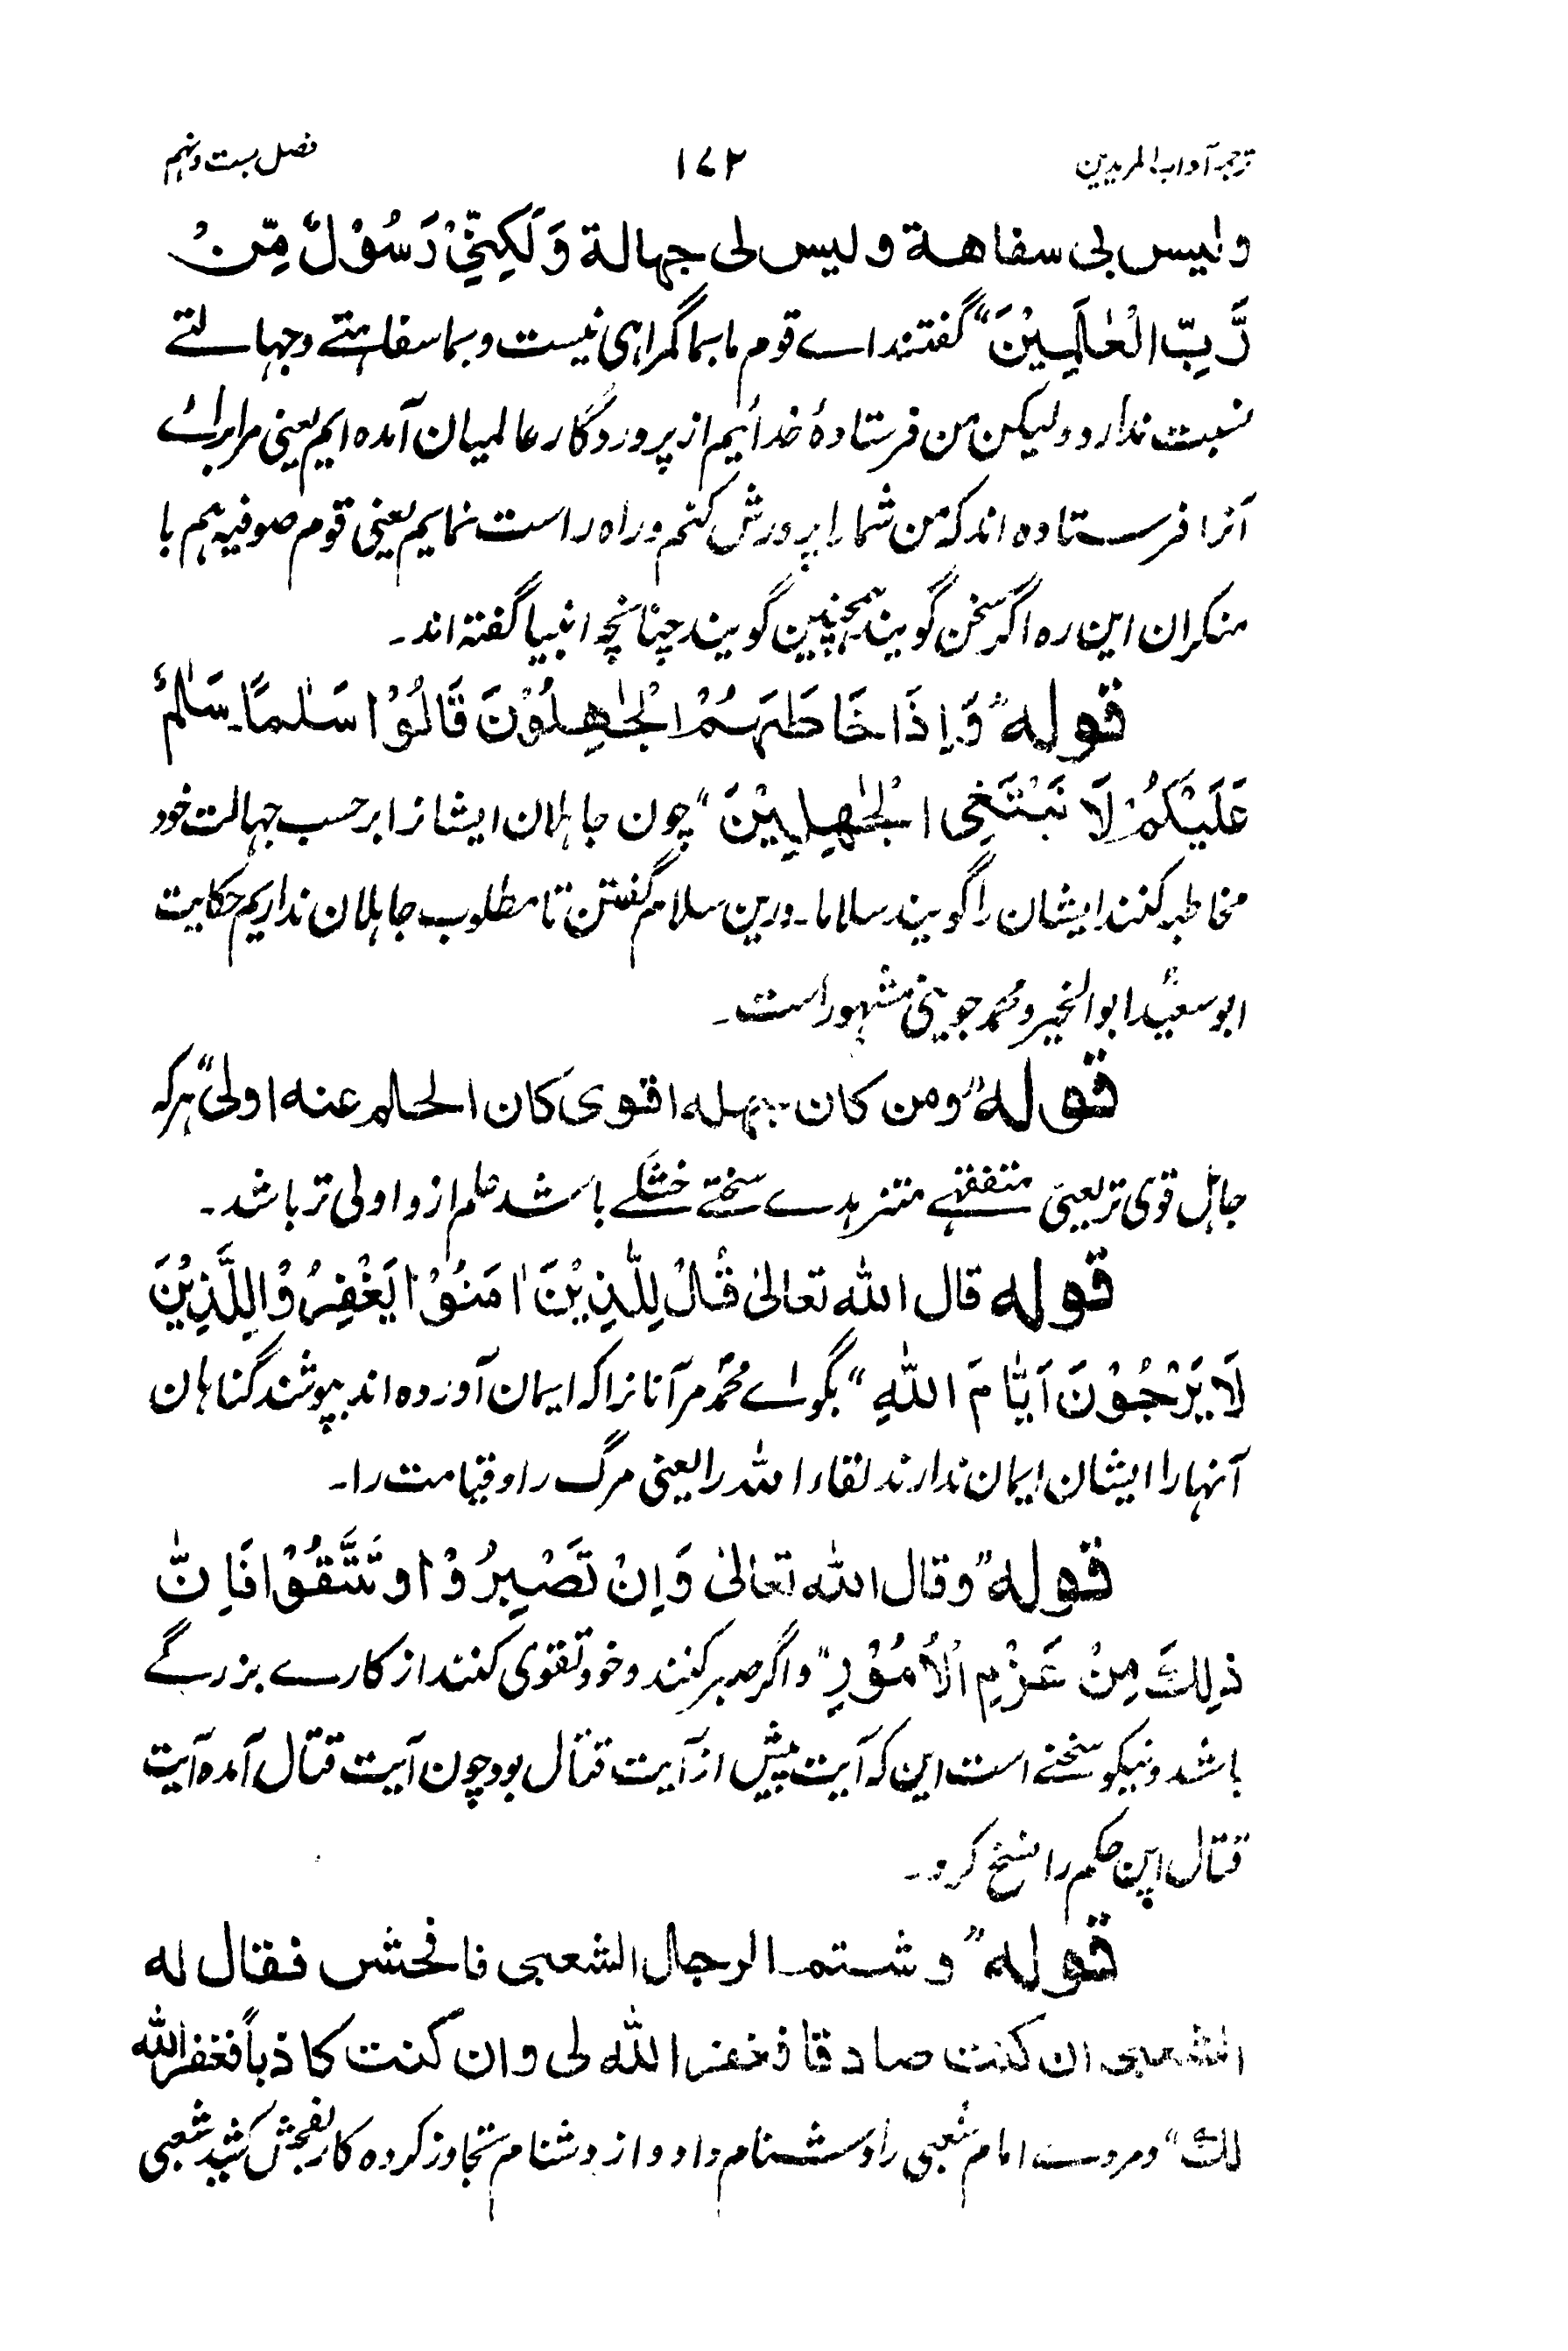 ترجمہ آداب المریدین ۱۷۲ فصل بست و نہم
ولیس بی سفاهة ولیس لی جهالة وَلٰكِنِّیْ رَسُوْلٌ مِّنْ
رَّبِّ الْعٰلَمِیْنَ" گفتند اے قوم ما بما گمراہی نیست و بما سفاہتے و جہالتے
نسبت ندارد ولیکن من فرستادهٔ خدائیم از پروردگار عالمیان آمده ایم یعنی مرا برائے
آنرا فرستاده اند که من شما را پرورش کنم و راه راست نمایم یعنی قوم صوفیه هم با
منکران این ره اگر سخن گویند همچنین گویند چنانچه انبیا گفته اند۔
قوله "وَاِذَا خَاطَبَهُمُ الْجٰهِلُوْنَ قَالُوْا سَلٰمًا۔ سَلٰمٌ
عَلَیْكُمْ لَا نَبْتَغِی الْجٰهِلِیْنَ" چون جاہلان ایشانرا بر حسب جہالت خود
مخاطبه کنند ایشان را گویند سلاما۔ ورین سلام گفتن تا مطلوب جاہلان نداریم حکایت
ابو سعیدؒ ابو الخیر و محمد جوینی مشہور است۔
قوله "ومن كان جهله اقوى كان الحلم عنه اولى" ہر کہ
جاہل قوی تر یعنی متفقہے متزہدے سختے خشکے باشد حلم ازو اولی تر باشد۔
قوله قال الله تعالیٰ قُلْ لِلَّذِیْنَ اٰمَنُوْا یَغْفِرُوْا لِلَّذِیْنَ
لَا یَرْجُوْنَ اَیَّامَ اللّٰهِ" بگو اے محمدؐ مر آنانرا که ایمان آورده اند بپوشند گناہان
آنہا را ایشان ایمان ندارند لقاء الله را یعنی مرگ را و قیامت را۔
قوله "وقال الله تعالیٰ وَاِنْ تَصْبِرُوْا وتَتَّقُوْا فَاِنَّ
ذٰلِكَ مِنْ عَزْمِ الْاُمُوْرِ" و اگر صبر کنند و خود تقوی کنند از کارے بزرگے
باشد و نیکو سخنے است این که آیت پیش از آیت قتال بود چون آیت قتال آمد آیت
قتال این حکم را نسخ کرد۔
قوله" وشتم الرجال الشعبی فافحش فقال له
الشعبی ان كنت صادقا فغفر الله لی وان كنت كاذباً فغفر الله
لك" و مردے امام شعبی را دشنام داد و از دشنام تجاوز کرده کار بفحش کشید شعبی